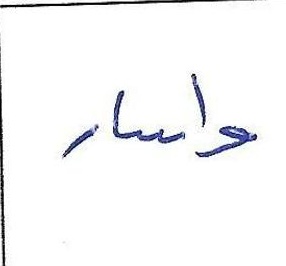 واسار